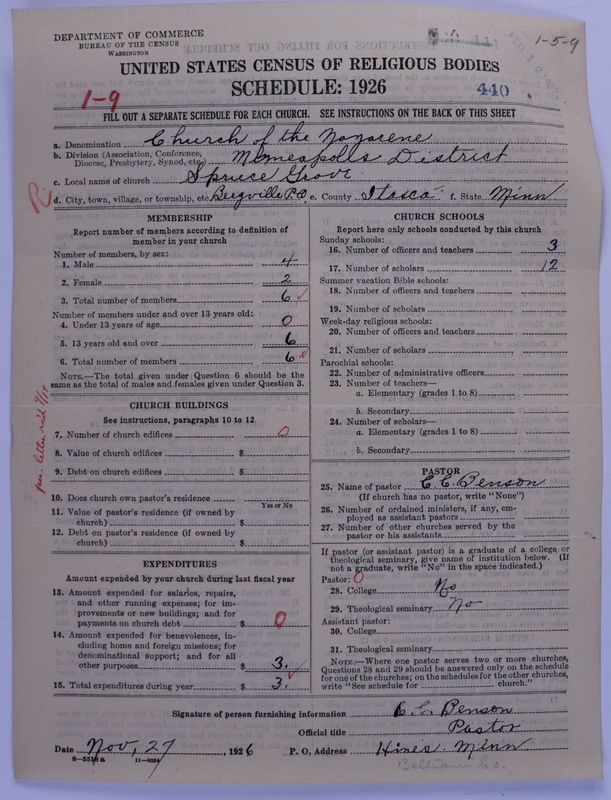 DEPARTMENT OF COMMERCE
BUREAU OF THE CENSUS
WASHINGTON
1-5-9
UNITED STATES CENSUS OF RELIGIOUS BODIES
SCHEDULE: 1926
1-9
440
FILL OUT A SEPARATE SCHEDULE FOR EACH CHURCH. SEE INSTRUCTIONS ON THE BACK OF THIS SHEET
a. Denomination Church of the Nazarene
b. Division (Association, Conference, Diocese, Presbytery, Synod, etc.) Minneapolis District
c. Local name of church Spruce Grove
d. City, town, village, or township, etc. Bergville P.O, e. County Itasca f. State Minn
MEMBERSHIP
Report number of members according to definition of
member in your church
Number of members, by sex:
1. Male 4
2. Female 2
3. Total number of members 6
Number of members under and over 13 years old:
4. Under 13 years of age 0
5. 13 years old and over 6
6. Total number of members 6
NOTE.—The total given under Question 6 should be
same as the total of males and females given under Question 3.
CHURCH BUILDINGS
See instructions, paragraphs 10 to 12
7. Number of church edifices 0
8. Value of church edifices $
9. Debt on church edifices $
10. Does church own pastor's residence
Yes or No
11. Value of pastor's residence (if owned by
church) $
12. Debt on pastor's residence (if owned by
church) $
EXPENDITURES
Amount expended by your church during last fiscal year
13. Amount expended for salaries, repairs,
and other running expenses; for im-
provements or new buildings; and for
payments on church debt $ 0
14. Amount expended for benevolences, in-
cluding home and foreign missions; for
denominational support; and for all
other purposes $ 3.
15. Total expenditures during year $ 3.
CHURCH SCHOOLS
Report here only schools conducted by this church
Sunday schools:
16. Number of officers and teachers 3
17. Number of scholars 12
Summer vacation Bible schools:
18. Number of officers and teachers
19. Number of scholars
Week-day religious schools:
20. Number of officers and teachers
21. Number of scholars
Parochial schools:
22. Number of administrative officers
23. Number of teachers—
a. Elementary (grades 1 to 8)
b. Secondary
24. Number of scholars—
a. Elementary (grades 1 to 8)
b. Secondary
PASTOR
25. Name of pastor C. C. Benson
(If church has no pastor, write "None")
26. Number of ordained ministers, if any, em-
ployed as assistant pastors
27. Number of other churches served by the
pastor or his assistants
If pastor (or assistant pastor) is a graduate of a college or
theological seminary, give name of institution below. (If
not a graduate, write "No" in the space indicated.)
Pastor: 0
28. College No
29. Theological seminary No
Assistant pastor:
30. College
31. Theological seminary
NOTE.—Where one pastor serves two or more churches,
Questions 28 and 29 should be answered only on the schedule
for one of the churches; on the schedules for the other churches,
write "See schedule for church."
Signature of person furnishing information C. C. Benson
Official title Pastor
Date Nov, 27 1926 P. O. Address Hines Minn
Beltrami Co.